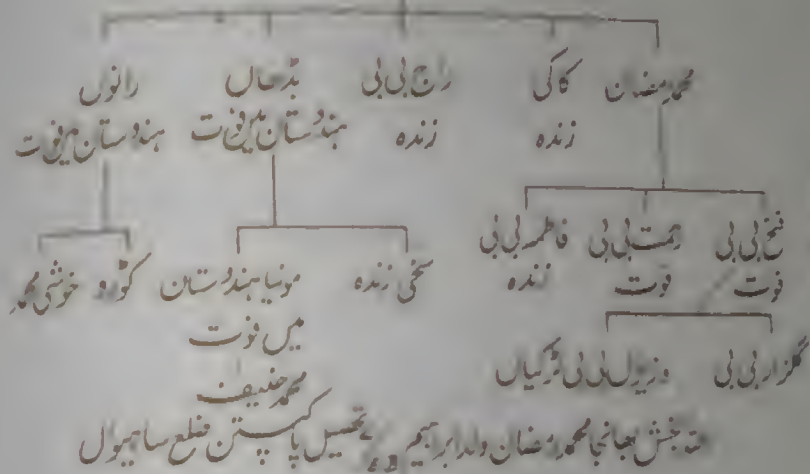 محمد رمضان کاکی راج بی بی بڈھاں رانوں
زندہ زندہ ہندوستان میں فوت ہندوستان میں فوت
فتح بی بی ہمت بی بی فاطمہ بی بی
فوت فوت زندہ
سخی زندہ مونیا ہندوستان کوڑو خوشی محمد
میں فوت
محمد حنیف
گلزار بی بی وزیراں بی بی لڑکیاں
بخش بھانجا محمد رمضان ولد ابراہیم تحصیل پاکپتن ضلع ساہیوال